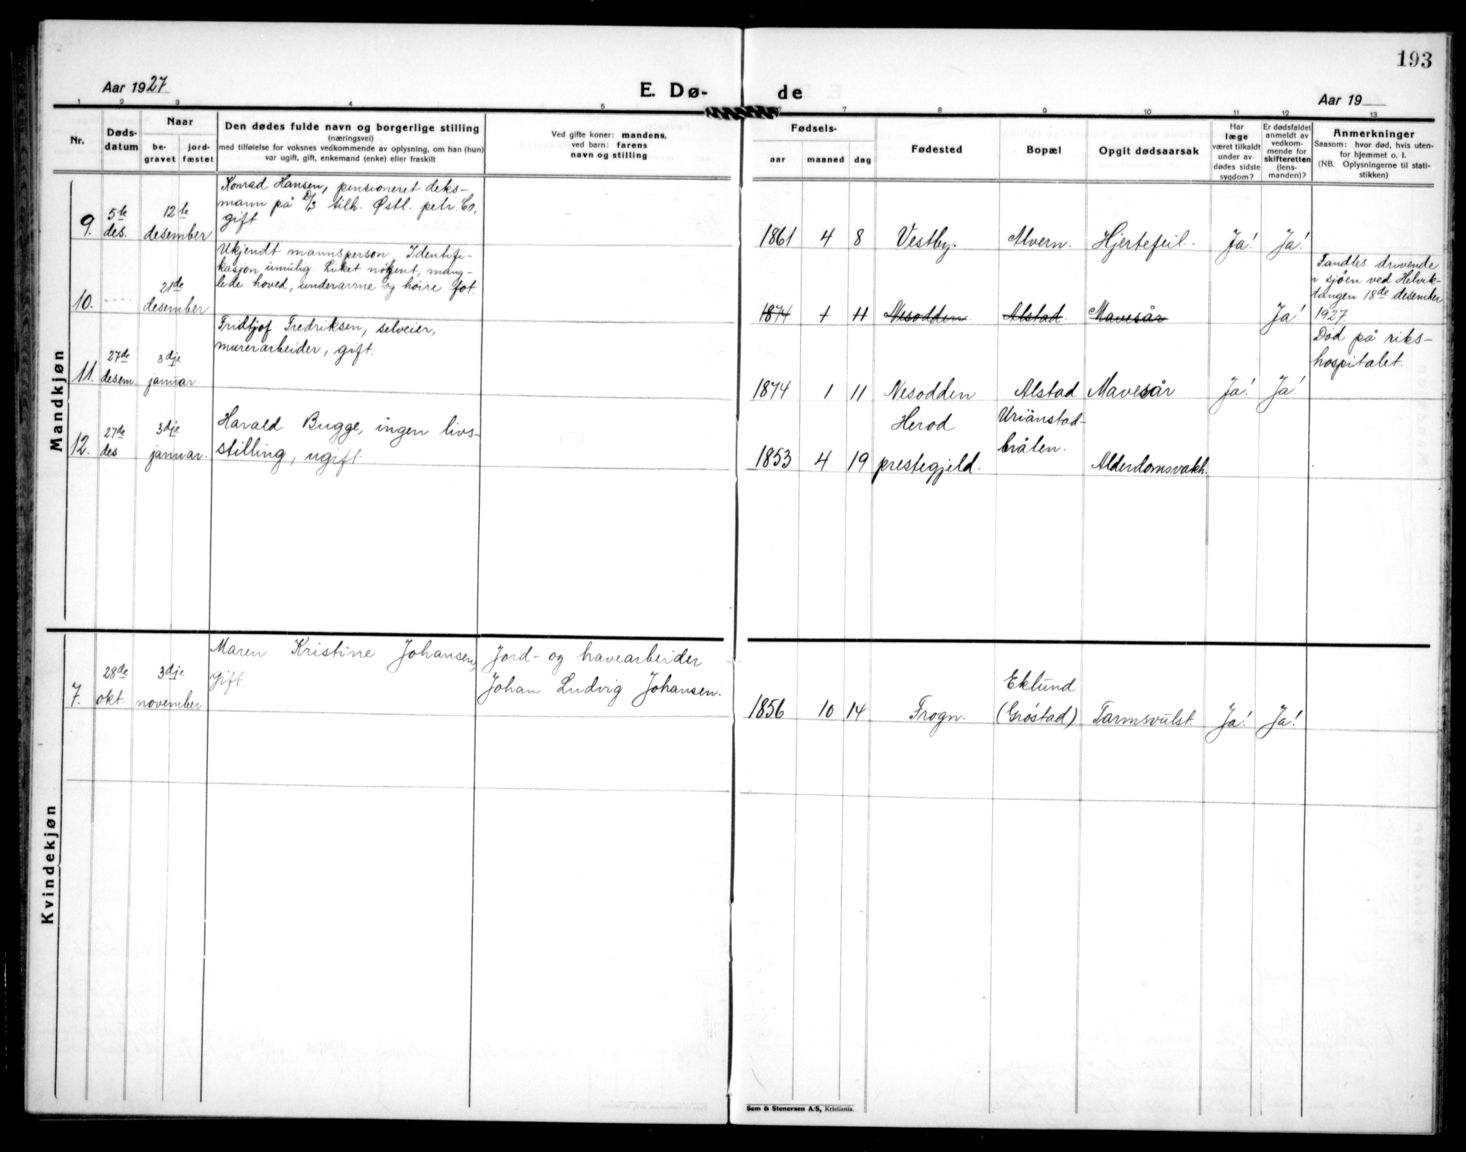 193
Aar 1927
E. Dø-
de
Aar 19
1 2 3 4 5 6 7 8 9 10 11 12 13
Nr.
Døds-
datum
Naar
be-
gravet
jord-
fæstet
Den dødes fulde navn og borgerlige stilling
(næringsvei)
med tilføielse for voksnes vedkommende av oplysning, om han (hun)
var ugift, gift, enkemand (enke) eller fraskilt
Ved gifte koner: mandens,
ved barn: farens
navn og stilling
Fødsels-
aar maaned dag
Fødested
Bopæl
Opgit dødsaarsak
Har
læge
været tilkaldt
under av
dødes sidste
sygdom?
Er dødsfaldet
anmeldt av
vedkom-
mende for
skifteretten
(lens-
manden)?
Anmerkninger
Seasom: hvor død, hvis uten-
for hjemmet o. l.
(NB. Oplysningerne til stati-
stikken)
Mandkjøn
9.
5te
des.
12te
desember
Konrad Hansen, pensioneret deks-
mann på D/S tilh. Østl. petr. Co,
gift
1861 4 8 Vestby. Alvern. Hjertefeil. Ja! Ja!
10.
21de
desember
Ukjendt mannsperson, Identifi-
kasjon umulig. Liket nøkent, mang-
lede hoved, underarme og høire fot.
1874 1 11 Nesodden Alstad. Mavesår Ja!
Fandtes drivende
i sjøen ved Helvik-
tangen 18de desember
1927
11.
27de
desem.
3dje
januar
Fridtjof Fredriksen, selveier,
murerarbeider, gift.
1874 1 11 Nesodden Alstad Mavesår Ja! Ja!
Død på riks-
hospitalet.
12.
27de
des
3dje
januar.
Harald Bugge, ingen livs-
stilling, ugift.
1853 4 19
Herod
prestegjeld.
Uriänstad-
bråten.
Alderdomsvakh.
Kvindekjøn
7.
28de
okt.
3dje
november
Maren Kristine Johansen,
gift.
Jord- og havearbeider
Johan Ludvig Johansen.
1856 10 14 Frogn.
Eklund
(Grøstad)
Tarmsvulst. Ja! Ja!
Sem & Stenersen A/S, Kristiania.